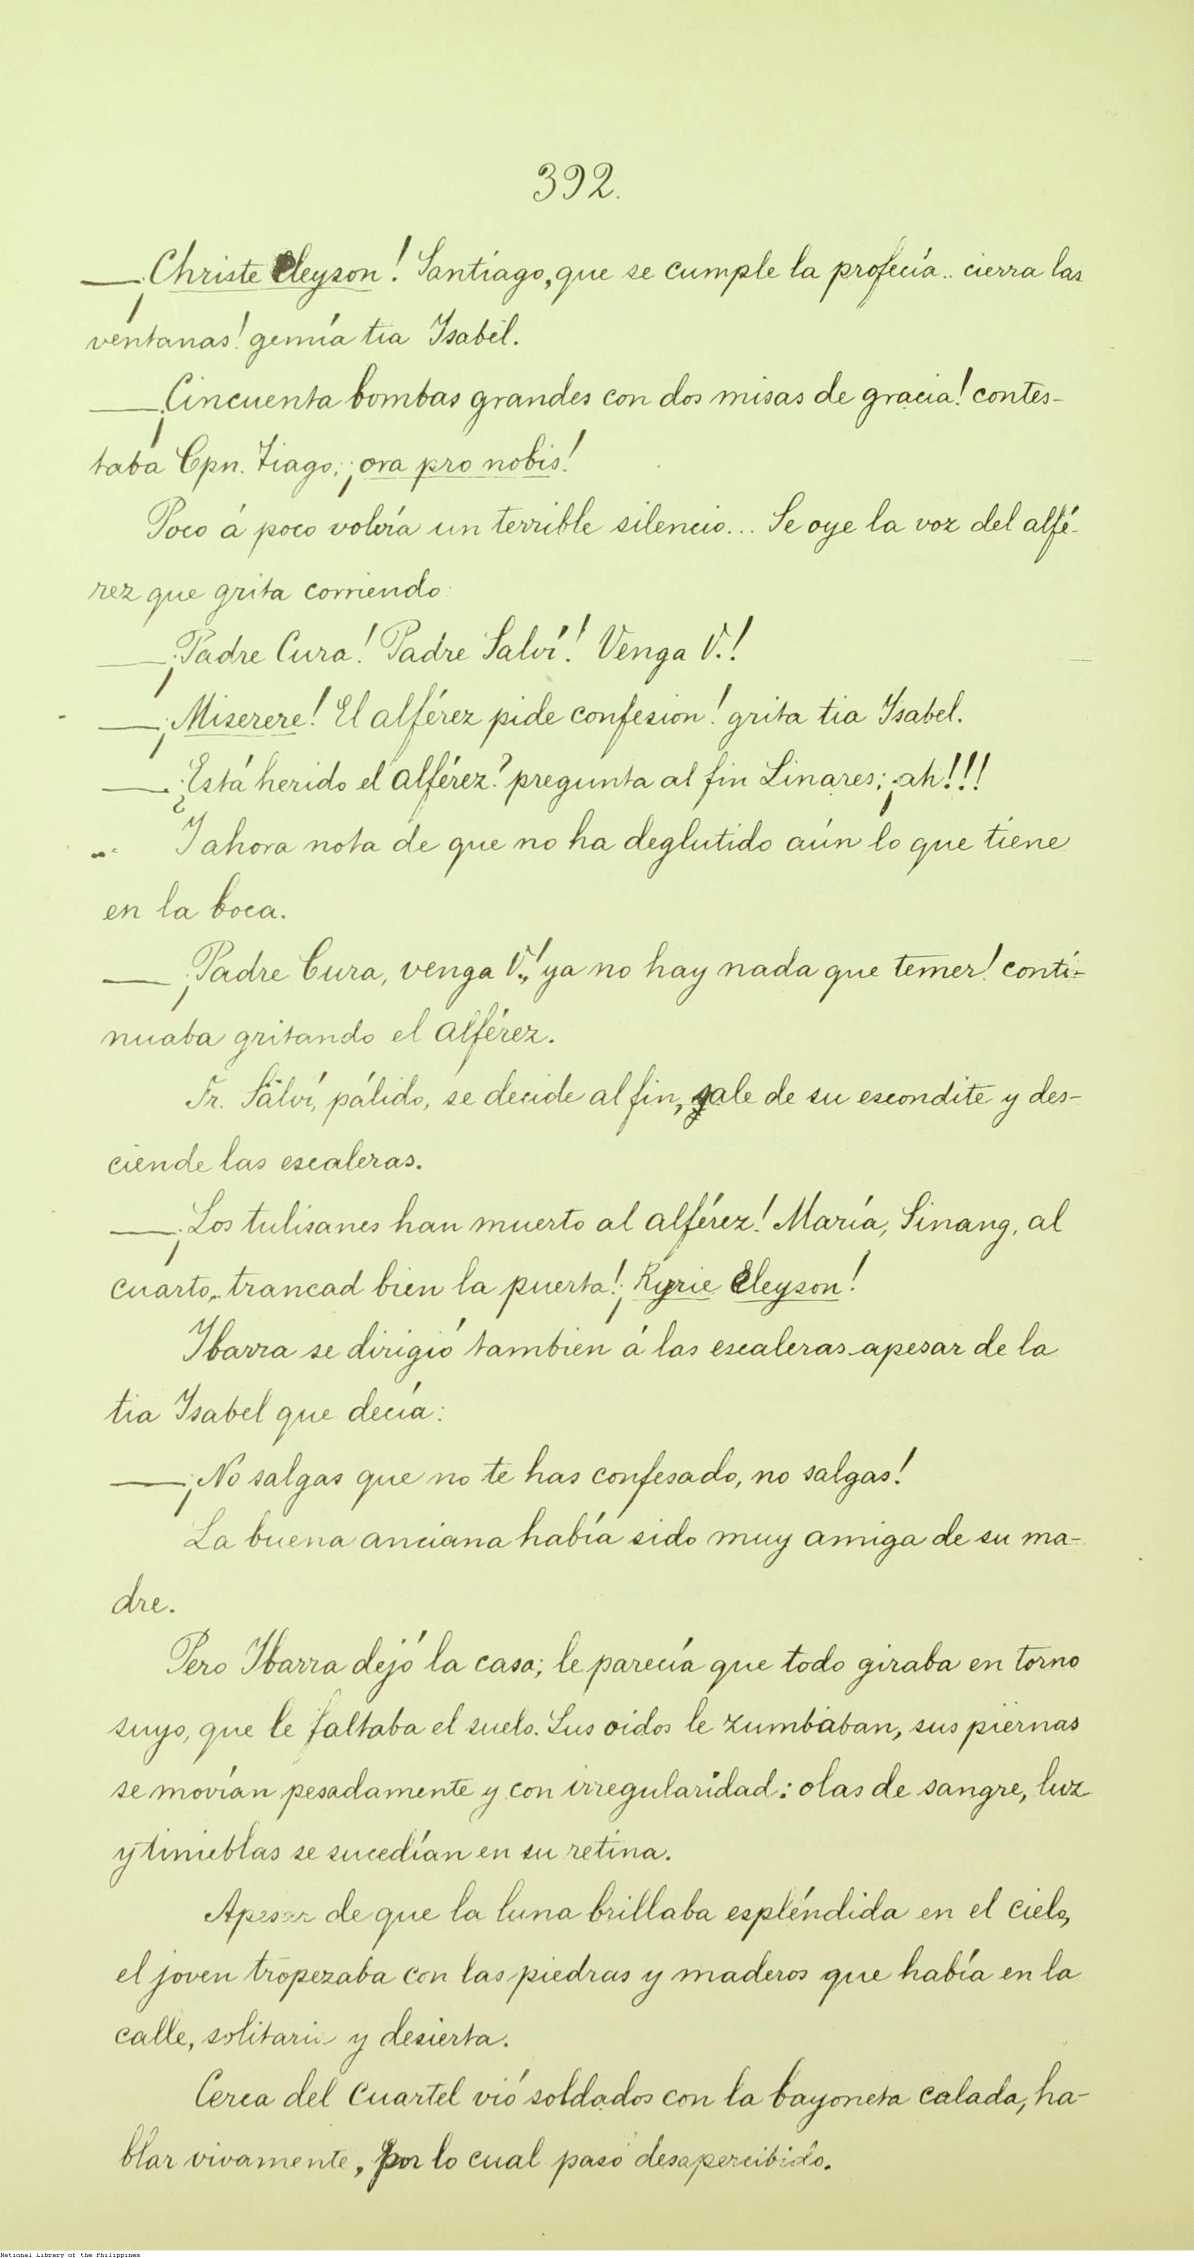 392.
—¡Christe Eleyson! Santiago, que se cumple la profecía.. cierra las
ventanas! gemía tia Isabel.
—¡Cincuenta bombas grandes con dos misas de gracia! contes-
taba Cpn. Tiago; ¡ora pro nobis!
Poco á poco volvía un terrible silencio... Se oye la voz del alfé-
rez que grita corriendo:
—¡Padre Cura! Padre Salví! Venga V.!
—¡Miserere! El alférez pide confesion! grita tia Isabel.
—¿Está herido el alférez? pregunta al fin Linares; ¡ah!!!
Y ahora nota de que no ha deglutido aún lo que tiene
en la boca.
—¡Padre Cura, venga V.! ya no hay nada que temer! conti-
nuaba gritando el alférez.
Fr. Salví, pálido, se decide al fin, sale de su escondite y des-
ciende las escaleras.
—¡Los tulisanes han muerto al alférez! María, Sinang, al
cuarto, trancad bien la puerta! ¡Kyrie Eleyson!
Ibarra se dirigió tambien á las escaleras apesar de la
tia Isabel que decía:
—¡No salgas que no te has confesado, no salgas!
La buena anciana había sido muy amiga de su ma-
dre.
Pero Ibarra dejó la casa; le parecía que todo giraba en torno
suyo, que le faltaba el suelo. Sus oidos le zumbaban, sus piernas
se movían pesadamente y con irregularidad: olas de sangre, luz
y tinieblas se sucedían en su retina.
Apesar de que la luna brillaba espléndida en el cielo,
el joven tropezaba con las piedras y maderos que había en la
calle, solitaria y desierta.
Cerca del cuartel vió soldados con la bayoneta calada, ha-
blar vivamente, por lo cual pasó desapercibido.
National Library of the Philippines